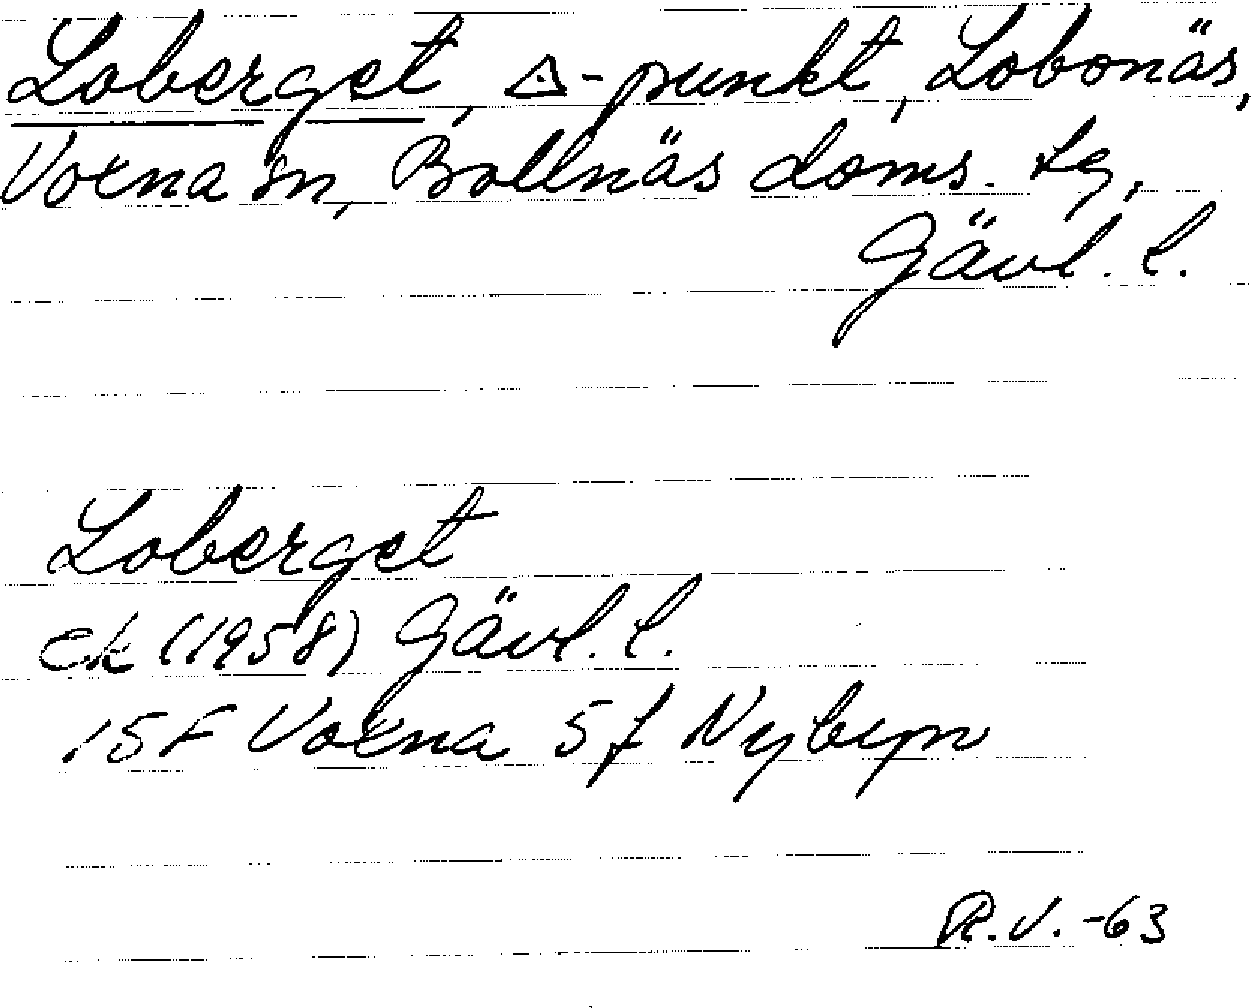 Loberget, △-punkt, Lobonäs,
Voxna sn, Bollnäs doms. tg,
Gävl. l.
Loberget
ek (1958) Gävl. l.
15F Voxna 5f Nybyn
R.V. -63